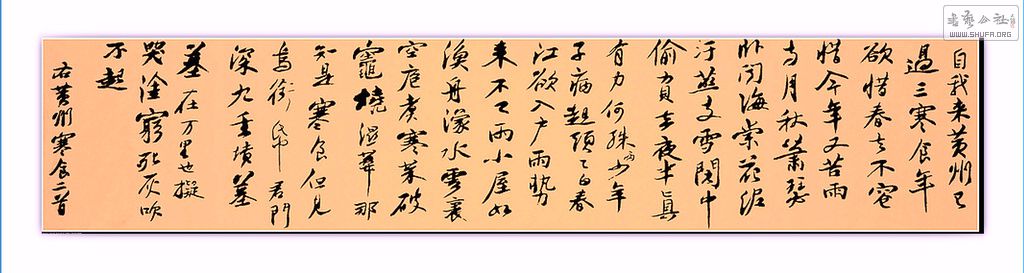 自我来黄州已
過三寒食年
欲惜春去不容
惜今年又苦雨
兩月秋蕭瑟
卧聞海棠花泥
汙燕支雪闇中
偷負去夜半真
有力何殊少年
子病起頭已白春
江欲入户雨勢
来不已雨小屋如
漁舟濛水雲裏
空庖煮寒菜破
竈燒濕葦那
知是寒食但見
烏銜帋君門
深九重墳墓
在万里也擬
哭塗窮死灰吹
不起
右黄州寒食二首
書藝公社
WWW.SHUFA.ORG